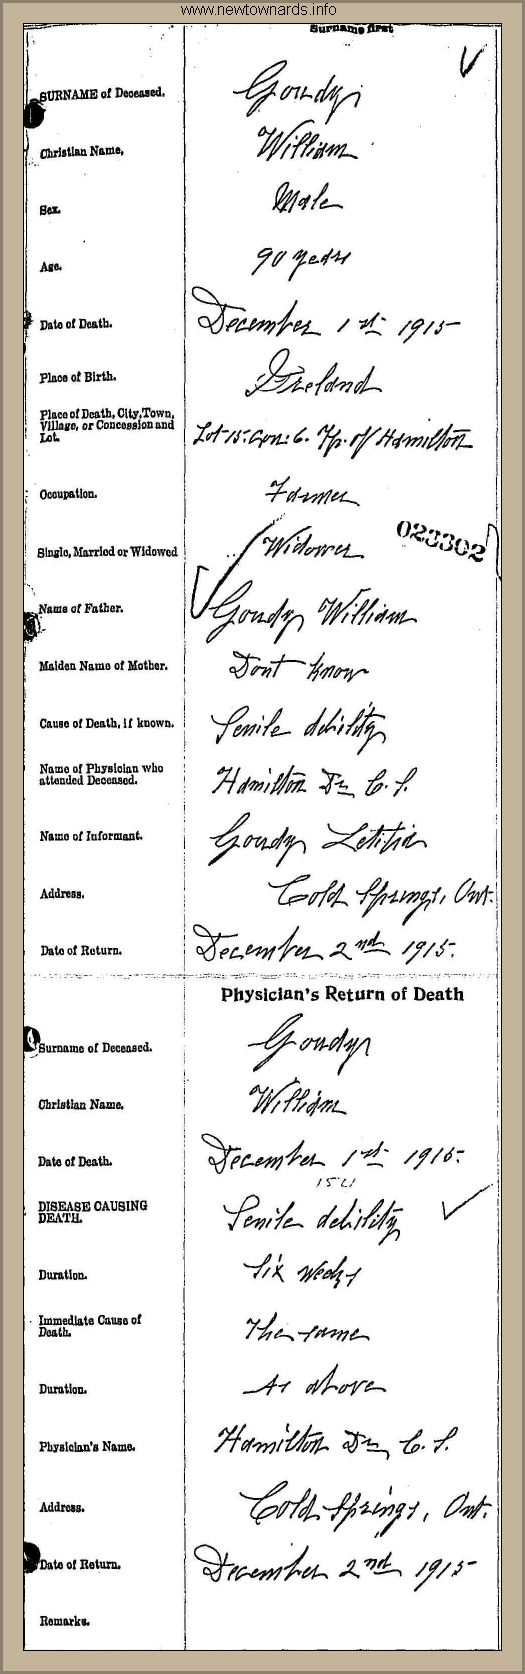 www.newtownards.info
Surname first
SURNAME of Deceased. Goudy
Christian Name, William
Sex. Male
Age. 90 years
Date of Death. December 1st 1915
Place of Birth. Ireland
Place of Death, City, Town,
Village, or Concession and
Lot. Lot 15. Con: 6. Tp. of Hamilton
Occupation. Farmer
023302
Single, Married or Widowed Widower
Name of Father. Goudy William
Maiden Name of Mother. Dont know
Cause of Death, if known. Senile debility
Name of Physician who
attended Deceased. Hamilton Dr C. S.
Name of Informant. Goudy Letitia
Address. Cold Springs, Ont.
Date of Return. December 2nd 1915.
Physician's Return of Death
Surname of Deceased. Goudy
Christian Name. William
Date of Death. December 1st 1915.
154
DISEASE CAUSING
DEATH. Senile debility
Duration. Six weeks
Immediate Cause of
Death. The same
Duration. As above
Physician's Name. Hamilton Dr. C. S.
Address. Cold Springs, Ont.
Date of Return. December 2nd 1915
Remarks.